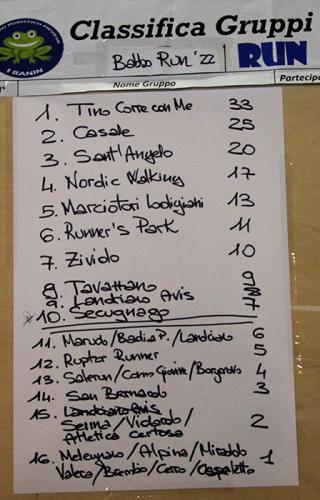 Classifica Gruppi
I RANIN
Babbo RUN '22
RUN
Nome Gruppo
Partecipa
1. Tino Corre con Me 33
2. Casale 25
3. Sant'Angelo 20
4. Nordic Walking 17
5. Marciatori Lodigiani 13
6. Runner's Park 11
7. Zivido 10
8. Tavazzano 9
9. Landriano Avis 8
10. Secugnago 7
11. Marudo/Badia P./Landriano 6
12. Ruptor Runner 5
13. Salerun/Corno Giovine/Borgarello 4
14. San Bernardo 3
15. Landriano Avis
Selma/Vilardo/ 2
Atletica Certosa
16. Melegnano/Alpina/Miradolo 1
Valera/Brembio/Cerro/Ospedaletto